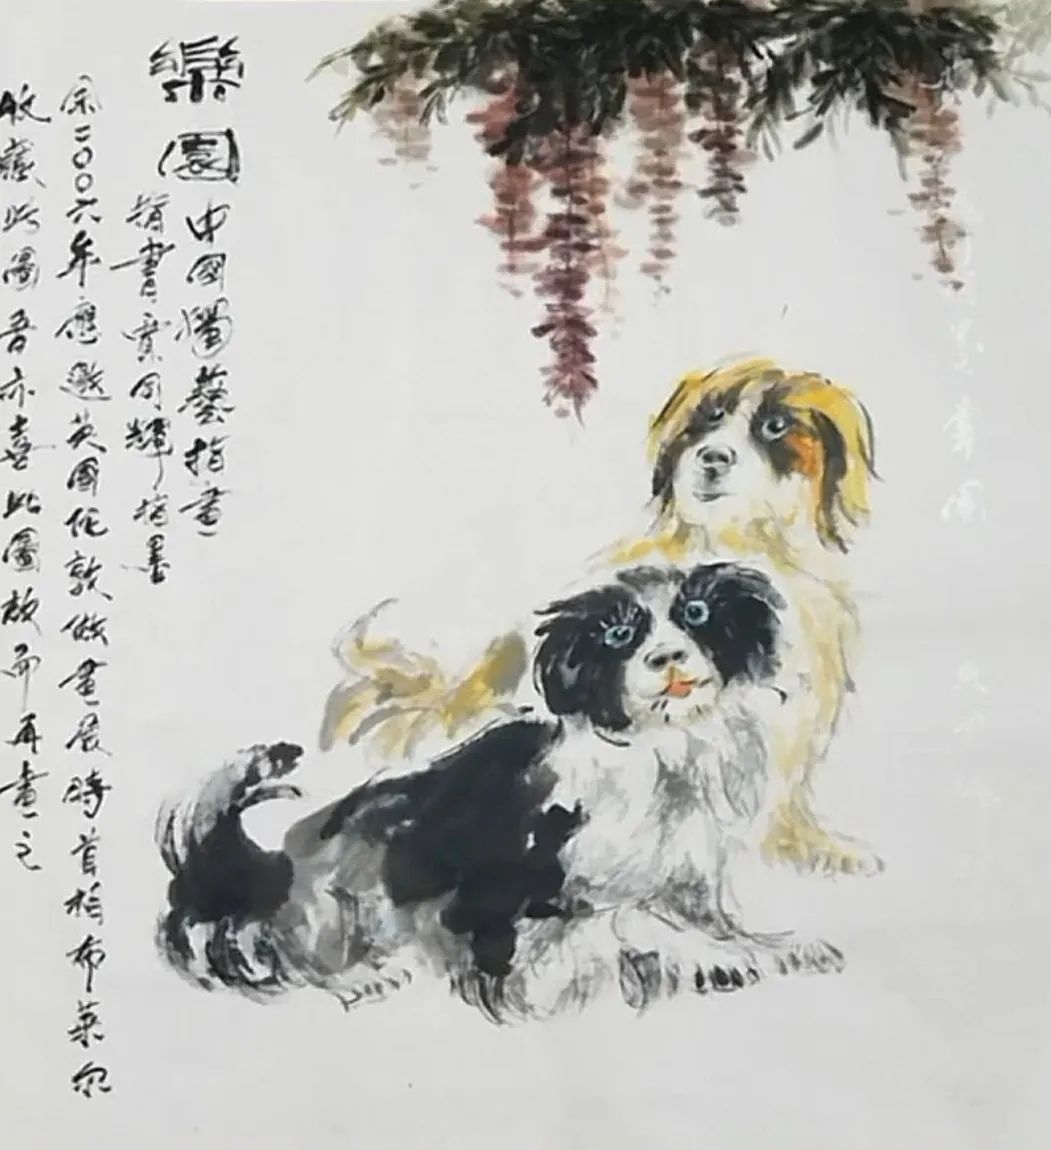 樂園
中國獨藝指畫
指書賓同輝指墨
余二〇〇六年應邀英國伦敦做畫展時首相布莱尔
收藏此圖吾亦喜此圖故而再畫之